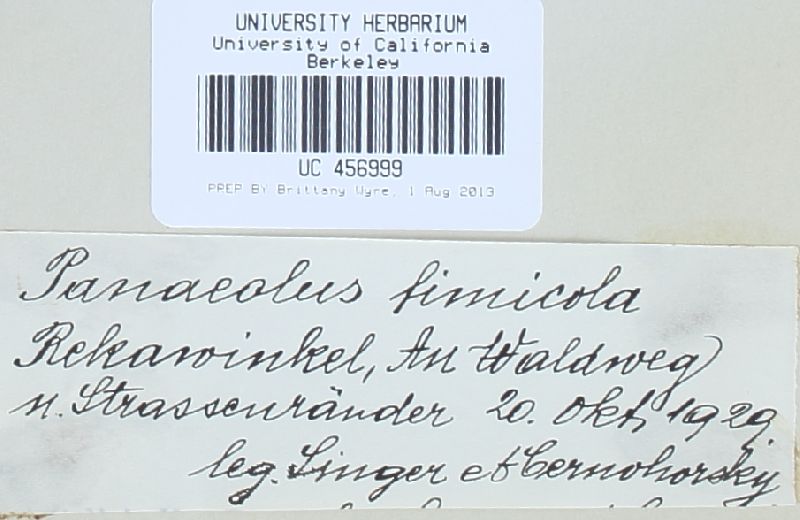 UNIVERSITY HERBARIUM
University of California
Berkeley
UC 456999
PREP BY Brittany Wyre, 1 Aug 2013
Panaeolus fimicola
Rekawinkel, An Waldweg)
u. Strassenränder 20. Okt. 1929.
leg. Singer et Cernohorsky